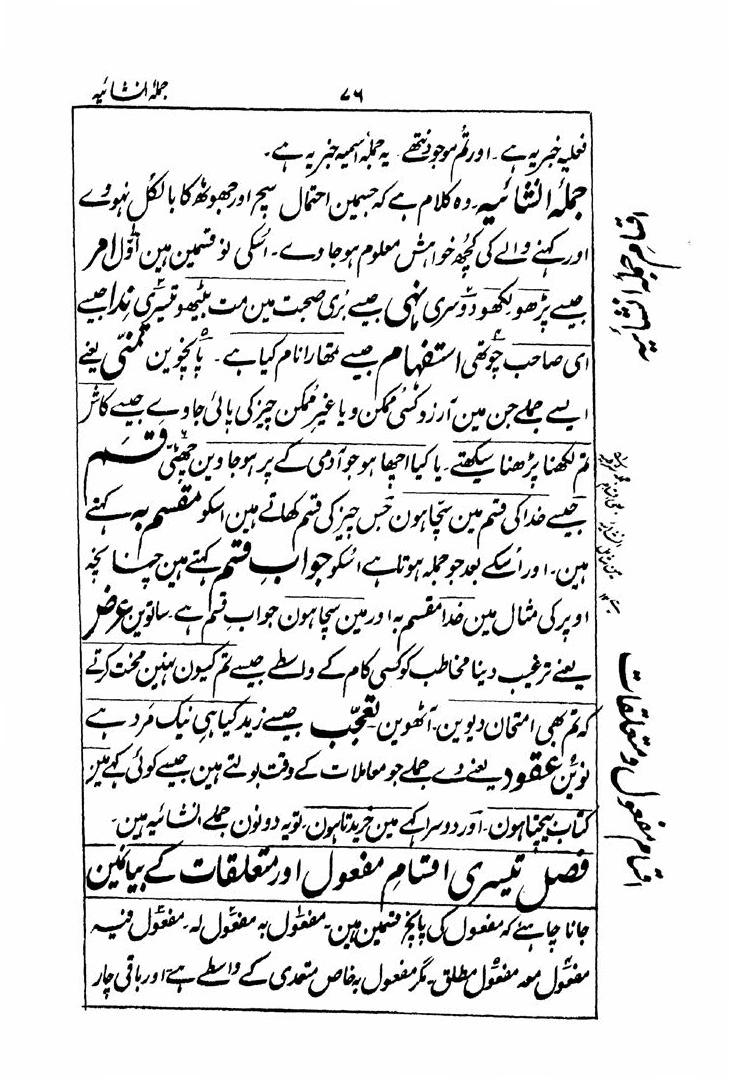 جملۂ انشائیہ
۷۶
فعلیہ خبریہ ہے۔ اور تم موجود نتھے یہ جملۂ اسمیہ خبریہ ہے۔
جملۂ انشائیہ۔ وہ کلام ہے کہ جسمین احتمال سچ اور جھوٹھ کا بالکل نہووے
اور کہنے والے کی کچھ خواہش معلوم ہو جاوے۔ اسکی نو قسمین ہین اوّل امر
جیسے پڑھو لکھو دوسری نہی جیسے بری صحبت مین مت بیٹھو تیسری ندا جیسے
ای صاحب چوتھی استفہام جیسے تمھارا نام کیا ہے۔ پانچوین تمنّی یعنے
ایسے جملے جن مین آرزو کسی ممکن و یا غیر ممکن چیز کی پائی جاوے جیسے کاش
تم لکھنا پڑھنا سیکھتے۔ یا کیا اچھا ہو جو آدمی کے پر ہو جاوین چھٹی قسم
جیسے خدا کی قسم مین سچا ہون جس چیز کی قسم کھاتے ہین اسکو مقسم بہ کہتے
ہین۔ اور اُسکے بعد جو جملہ ہوتا ہے اسکو جواب قسم کہتے ہین چنانچہ
اوپر کی مثال مین خدا مقسم بہ اور مین سچا ہون جواب قسم ہے۔ ساتوین عرض
یعنے ترغیب دینا مخاطب کو کسی کام کے واسطے جیسے تم کیون نہین محنت کرتے
کہ تم بھی امتحان دیوین۔ آٹھوین تعجّب جیسے زید کیا ہی نیک مرد ہے
نوین عقود یعنے وے جملے جو معاملات کے وقت بولتے ہین جیسے کوئی کہے مین
کتاب بیچتا ہون۔ اور دوسرا کہے مین خریدتا ہون۔ تو یہ دونون جملے انشائیہ ہین۔
فصل تیسری اقسامِ مفعول اور متعلقات کے بیانمین
جانا چاہئے کہ مفعول کی پانچ قسمین ہین۔ مفعول بہ مفعول لہ۔ مفعول فیہ
مفعول معہ مفعول مطلق۔ مگر مفعول بہ خاص متعدی کے واسطے ہے اور باقی چار
اقسام مفعول و متعلقات